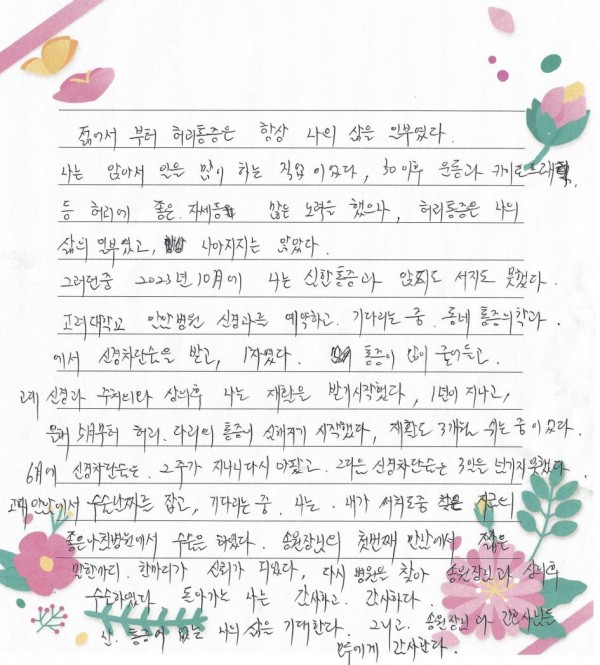 젊어서 부터 허리통증은 항상 나의 삶을 일부였다.
나는 앉아서 일을 많이 하는 직업 이었다, 30이후 운동과
등 허리에 좋은 자세등 많은 노력을 했으나, 허리통증은 나의
삶의 일부였고, 나아지지는 않았다.
그러던중 2023년 10月에 나는 심한통증과 앉지도 서지도 못했다.
고려대학교 안암병원 신경과를 예약하고. 기다리는 중. 동네 통증의학과
에서 신경차단술을 받고, 통증이 많이 줄어들고.
고대 신경과 주치의와 상의후 나는 재활을 받기시작했다, 1년이 지나고,
5月부터 허리. 다리의 통증이 심해지기 시작했다, 재활도 3개월 쉬는 중이었다.
6月에 신경차단술은. 2주가 지나니 다시 아팠고. 2다음 신경차단술은 3일을 넘기지못했다
고대 안암에서 수술날짜를 잡고, 기다리는 중. 나는. 내가 지금의
좋은나침병원에서 수술을 하였다. 송원장님의 첫번째 만남에서
말한마디. 한마디가 신뢰가 되었다, 다시 병원을 찾아 송원장님과 상의후
수술하였다 돌아가는 나는 감사하고. 감사하다.
통증이 없는 나의 삶을 기대한다. 그리고. 송원장님과 간호사님들
모두에게 감사한다.